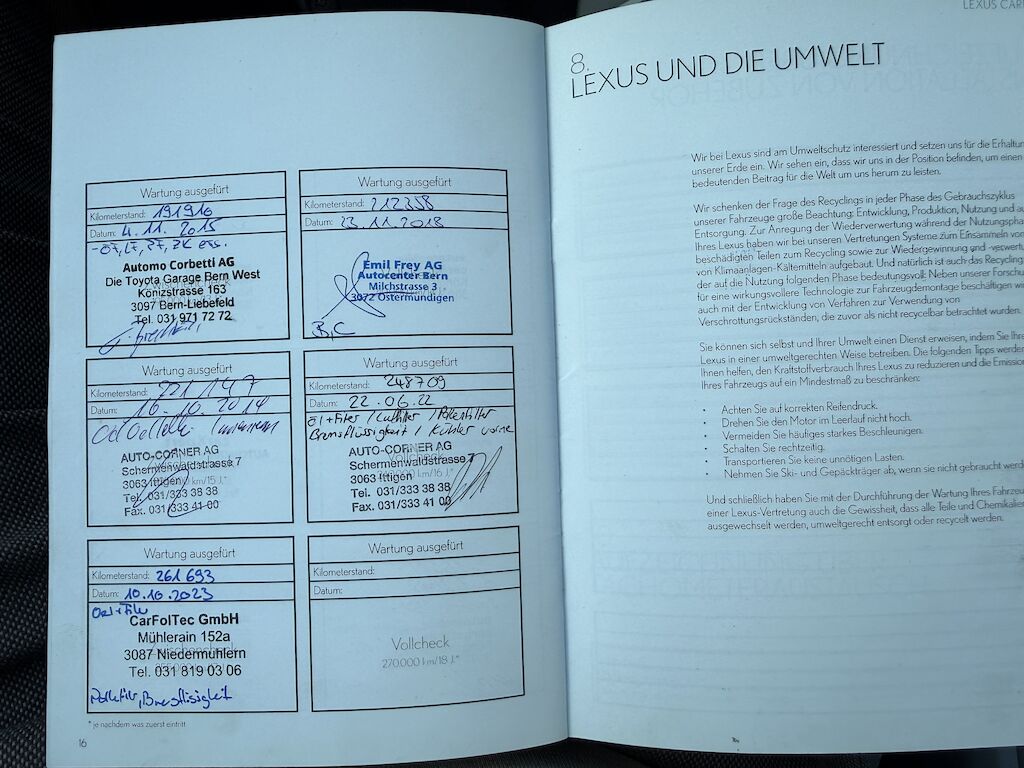 Wartung ausgefürt
Kilometerstand: 191916
Datum: 4.11.2015
Automo Corbetti AG
Die Toyota Garage Bern West
Könizstrasse 163
3097 Bern-Liebefeld
Tel. 031 971 72 72
Wartung ausgefürt
Kilometerstand: 212338
Datum: 23.11.2018
Emil Frey AG
Autocenter Bern
Milchstrasse 3
3072 Ostermundigen
B, C
Wartung ausgefürt
Kilometerstand:
Datum: 16.10.2019
AUTO-CORNER AG
Schermenwaldstrasse 7
3063 Ittigen
Tel. 031/333 38 38
Fax. 031/333 41 00
Wartung ausgefürt
Kilometerstand: 248709
Datum: 22.06.22
Öl + Filter / Luftfilter / Pollenfilter
Bremsflüssigkeit / Kühler vorne
AUTO-CORNER AG
Schermenwaldstrasse 7
3063 Ittigen
Tel. 031/333 38 38
Fax. 031/333 41 00
Wartung ausgefürt
Kilometerstand: 261693
Datum: 10.10.2023
CarFolTec GmbH
Mühlerain 152a
3087 Niedermuhlern
Tel. 031 819 03 06
Wartung ausgefürt
Kilometerstand:
Datum:
Vollcheck
270.000 km/18 J.*
* je nachdem was zuerst eintritt
16
LEXUS CAR
8.
LEXUS UND DIE UMWELT
Wir bei Lexus sind am Umweltschutz interessiert und setzen uns für die Erhaltun
unserer Erde ein. Wir sehen ein, dass wir uns in der Position befinden, um einen
bedeutenden Beitrag für die Welt um uns herum zu leisten.
Wir schenken der Frage des Recyclings in jeder Phase des Gebrauchszyklus
unserer Fahrzeuge große Beachtung: Entwicklung, Produktion, Nutzung und au
Entsorgung. Zur Anregung der Wiederverwertung während der Nutzungspha
Ihres Lexus haben wir bei unseren Vertretungen Systeme zum Einsammeln von
beschädigten Teilen zum Recycling sowie zur Wiedergewinnung und -verwert
von Klimaanlagen-Kältemitteln aufgebaut. Und natürlich ist auch das Recycling
der auf die Nutzung folgenden Phase bedeutungsvoll: Neben unserer Forschu
für eine wirkungsvollere Technologie zur Fahrzeugdemontage beschäftigen wir
auch mit der Entwicklung von Verfahren zur Verwendung von
Verschrottungsrückständen, die zuvor als nicht recycelbar betrachtet wurden.
Sie können sich selbst und Ihrer Umwelt einen Dienst erweisen, indem Sie Ihre
Lexus in einer umweltgerechten Weise betreiben. Die folgenden Tipps werden
Ihnen helfen, den Kraftstoffverbrauch Ihres Lexus zu reduzieren und die Emission
Ihres Fahrzeugs auf ein Mindestmaß zu beschränken:
• Achten Sie auf korrekten Reifendruck.
• Drehen Sie den Motor im Leerlauf nicht hoch.
• Vermeiden Sie häufiges starkes Beschleunigen.
• Schalten Sie rechtzeitig.
• Transportieren Sie keine unnötigen Lasten.
• Nehmen Sie Ski- und Gepäckträger ab, wenn sie nicht gebraucht werd
Und schließlich haben Sie mit der Durchführung der Wartung Ihres Fahrzeu
einer Lexus-Vertretung auch die Gewissheit, dass alle Teile und Chemikalie
ausgewechselt werden, umweltgerecht entsorgt oder recycelt werden.